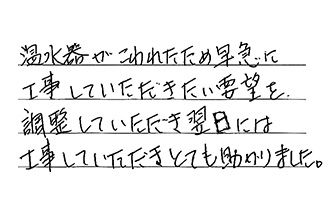 温水器がこわれたため早急に
工事していただきたい要望を、
調整していただき翌日には
工事していただきとても助かりました。